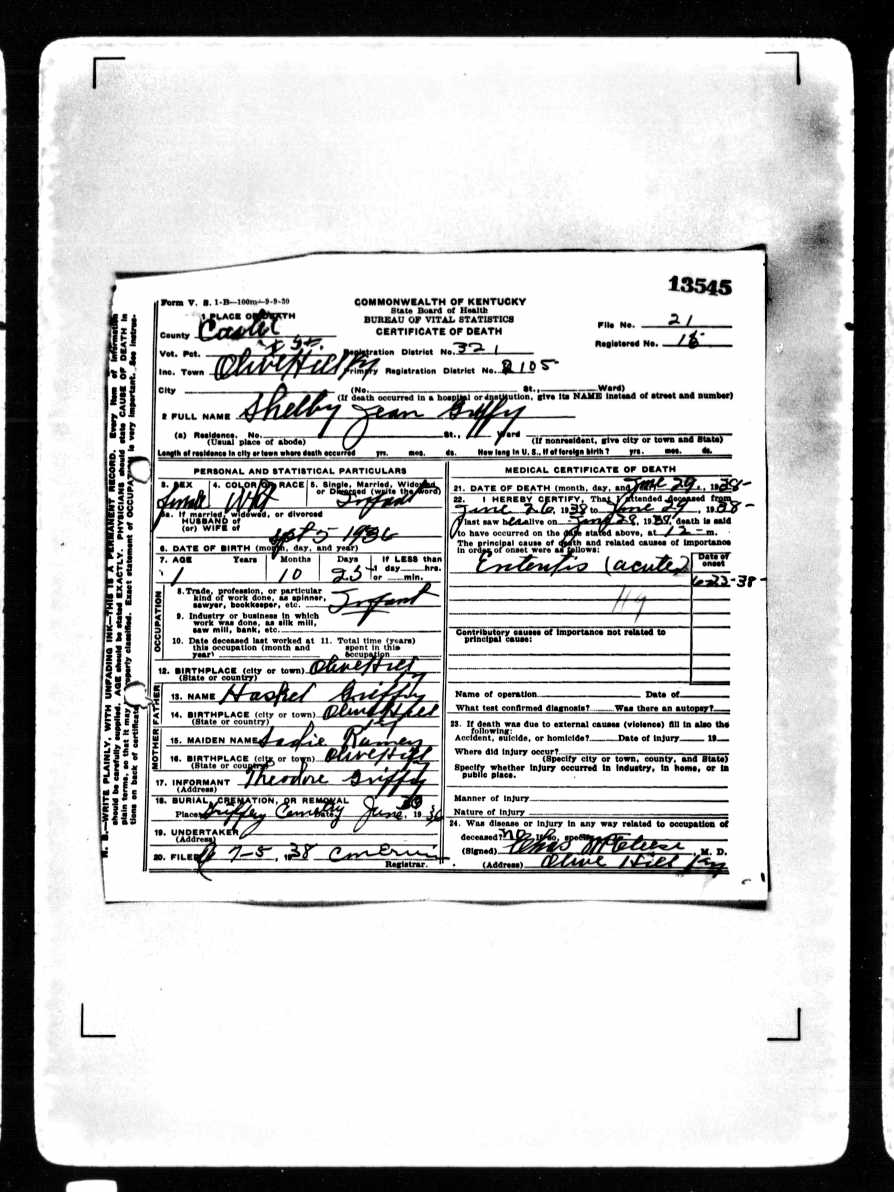 13545
Form V. S. 1-B—100m—9-9-30
COMMONWEALTH OF KENTUCKY
State Board of Health
BUREAU OF VITAL STATISTICS
CERTIFICATE OF DEATH
File No. 21
Registered No. 15
1 PLACE OF DEATH
County Carter
Vot. Pct.
Registration District No. 321
Inc. Town Olive Hill Ky Primary Registration District No. 2105
City (No. St., Ward)
(If death occurred in a hospital or institution, give its NAME instead of street and number)
2 FULL NAME Shelby Jean Griffy
(a) Residence. No. St., Ward
(Usual place of abode) (If nonresident, give city or town and State)
Length of residence in city or town where death occurred yrs. mos. ds. How long in U. S., if of foreign birth? yrs. mos. ds.
PERSONAL AND STATISTICAL PARTICULARS
3. SEX 4. COLOR OR RACE 5. Single, Married, Widowed, or Divorced (write the word)
Female Wht Infant
5a. If married, widowed, or divorced
HUSBAND of
(or) WIFE of
Sept 5 1936
6. DATE OF BIRTH (month, day, and year)
7. AGE Years Months Days If LESS than
1 10 25 1 day hrs.
or min.
OCCUPATION
8. Trade, profession, or particular
kind of work done, as spinner,
sawyer, bookkeeper, etc. Infant
9. Industry or business in which
work was done, as silk mill,
saw mill, bank, etc.
10. Date deceased last worked at 11. Total time (years)
this occupation (month and spent in this
year) occupation
12. BIRTHPLACE (city or town) Olive Hill
(State or country) Ky
FATHER
13. NAME Haskel Griffy
14. BIRTHPLACE (city or town) Olive Hill
(State or country) Ky
MOTHER
15. MAIDEN NAME Sadie Ramey
16. BIRTHPLACE (city or town) Olive Hill
(State or country) Ky
17. INFORMANT Theodore Griffy
(Address)
18. BURIAL, CREMATION, OR REMOVAL
Place Griffey Cemetry Date June 30, 19
19. UNDERTAKER
(Address)
20. FILED 7-5, 1938
Registrar.
MEDICAL CERTIFICATE OF DEATH
21. DATE OF DEATH (month, day, and year) June 29, 1938
22. I HEREBY CERTIFY, That I attended deceased from
June 26, 1938 to June 29, 1938
I last saw her alive on June 28, 1938, death is said
to have occurred on the date stated above, at 12 m.
The principal cause of death and related causes of importance
in order of onset were as follows:
Date of
onset
Enteritis (acute)
6-22-38
119
Contributory causes of importance not related to
principal cause:
Name of operation Date of
What test confirmed diagnosis? Was there an autopsy?
23. If death was due to external causes (violence) fill in also the
following:
Accident, suicide, or homicide? Date of injury 19
Where did injury occur?
(Specify city or town, county, and State)
Specify whether injury occurred in industry, in home, or in
public place.
Manner of injury
Nature of injury
24. Was disease or injury in any way related to occupation of
deceased? no If so, specify
(Signed) Chas M. D.
(Address) Olive Hill Ky
N. B.—WRITE PLAINLY, WITH UNFADING INK—THIS IS A PERMANENT RECORD. Every item of information
should be carefully supplied. AGE should be stated EXACTLY. PHYSICIANS should state CAUSE OF DEATH in
plain terms, so that it may be properly classified. Exact statement of OCCUPATION is very important. See instruc-
tions on back of certificate.